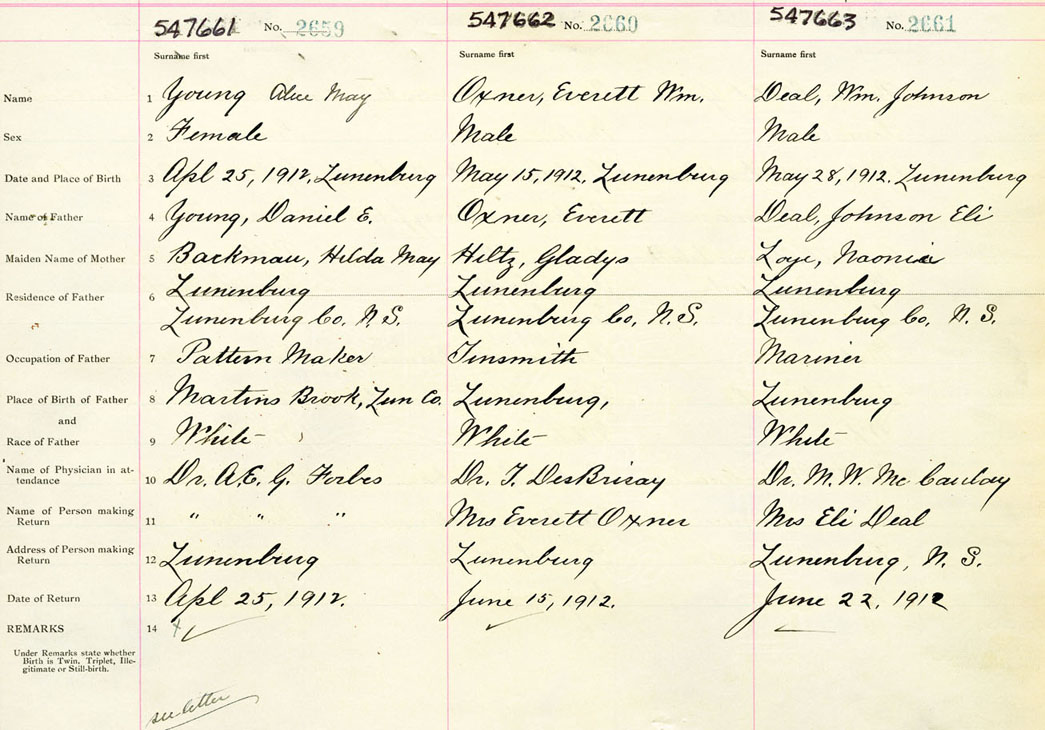 547661 No. 2659 547662 No. 2660 547663 No. 2661
Surname first Surname first Surname first
Name 1 Young Alice May Oxner, Everett Wm. Deal, Wm. Johnson
Sex 2 Female Male Male
Date and Place of Birth 3 Apl 25, 1912, Lunenburg May 15, 1912, Lunenburg May 28, 1912. Lunenburg
Name of Father 4 Young, Daniel E. Oxner, Everett Deal, Johnson Eli
Maiden Name of Mother 5 Backman, Hilda May Hiltz, Gladys Loye, Naomia
Residence of Father 6 Lunenburg Lunenburg Lunenburg
Lunenburg Co. N.S. Lunenburg Co, N.S. Lunenburg Co, N.S.
Occupation of Father 7 Pattern Maker Tinsmith Mariner
Place of Birth of Father 8 Martins Brook, Lun Co. Lunenburg, Lunenburg
and
Race of Father 9 White White White
Name of Physician in at-
tendance 10 Dr. A.E. G. Forbes Dr. T. DesBrisay Dr. M. W. McCauley
Name of Person making
Return 11 " " " Mrs Everett Oxner Mrs Eli Deal
Address of Person making
Return 12 Lunenburg Lunenburg Lunenburg, N. S.
Date of Return 13 Apl 25, 1912. June 15, 1912. June 22, 1912
REMARKS 14
Under Remarks state whether
Birth is Twin, Triplet, Ille-
gitimate or Still-birth.
see letter